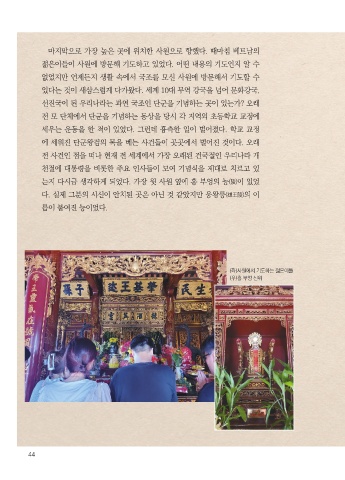 마지막으로 가장 높은 곳에 위치한 사원으로 향했다. 때마침 베트남의
젊은이들이 사원에 방문해 기도하고 있었다. 어떤 내용의 기도인지 알 수
없었지만 언제든지 생활 속에서 국조를 모신 사원에 방문해서 기도할 수
있다는 것이 새삼스럽게 다가왔다. 세계 10대 무역 강국을 넘어 문화강국,
선진국이 된 우리나라는 과연 국조인 단군을 기념하는 곳이 있는가? 오래
전 모 단체에서 단군을 기념하는 동상을 당시 각 지역의 초등학교 교정에
세우는 운동을 한 적이 있었다. 그런데 흉측한 일이 벌어졌다. 학교 교정
에 세워진 단군왕검의 목을 베는 사건들이 곳곳에서 벌어진 것이다. 오래
전 사건인 점을 떠나 현재 전 세계에서 가장 오래된 건국절인 우리나라 개
천절에 대통령을 비롯한 주요 인사들이 모여 기념식을 제대로 치르고 있
는지 다시금 생각하게 되었다. 가장 윗 사원 옆에 훙 부엉의 능(陵)이 있었
다. 실제 그분의 시신이 안치된 곳은 아닌 것 같았지만 웅왕릉(雄王陵)의 이
름이 붙여진 능이었다.
(좌)사원에서 기도하는 젊은이들
(우)훙 부엉 신위
子孫
建王基肇
生民
44